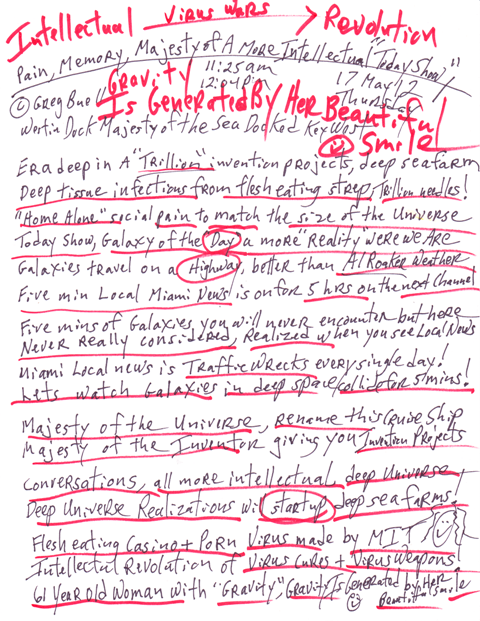 Intellectual Virus Wars > Revolution
Pain, Memory, Majesty of A More Intellectual "Today Show"
Gravity 11:25am 17 May 12
© Greg Buell 12:04pm Thursday
Is Generated By Her Beautiful Smile
Westin Dock Majesty of the Sea Docked Key West
Era deep in A "Trillion" invention projects, deep sea farm
Deep tissue infections from flesh eating strep, Trillion needles!
"Home Alone" social pain to match the size of the Universe
Today Show, Galaxy of the Day a more "Reality" were we Are
Galaxies travel on a Highway, better than Al Roaker Weather
Five min Local Miami News is on for 5 hrs on the next Channel
Five mins of Galaxies you will never encounter but here
Never Really considered, Realized when you see Local News
Miami Local news is Traffic Wrecks every single day!
Lets watch Galaxies in deep space collide for 5 mins!
Majesty of the Universe, rename this Cruise Ship
Majesty of the Inventor giving you Invention Projects
Conversations, all more intellectual, deep Universe,
Deep Universe Realizations will startup deep sea farms!
Flesh eating Casino + Porn Virus made by MIT
Intellectal Revolution of Virus Cures + Virus Weapons!
61 year old Woman with "Gravity", Gravity Is Generated by Her
Beautiful Smile